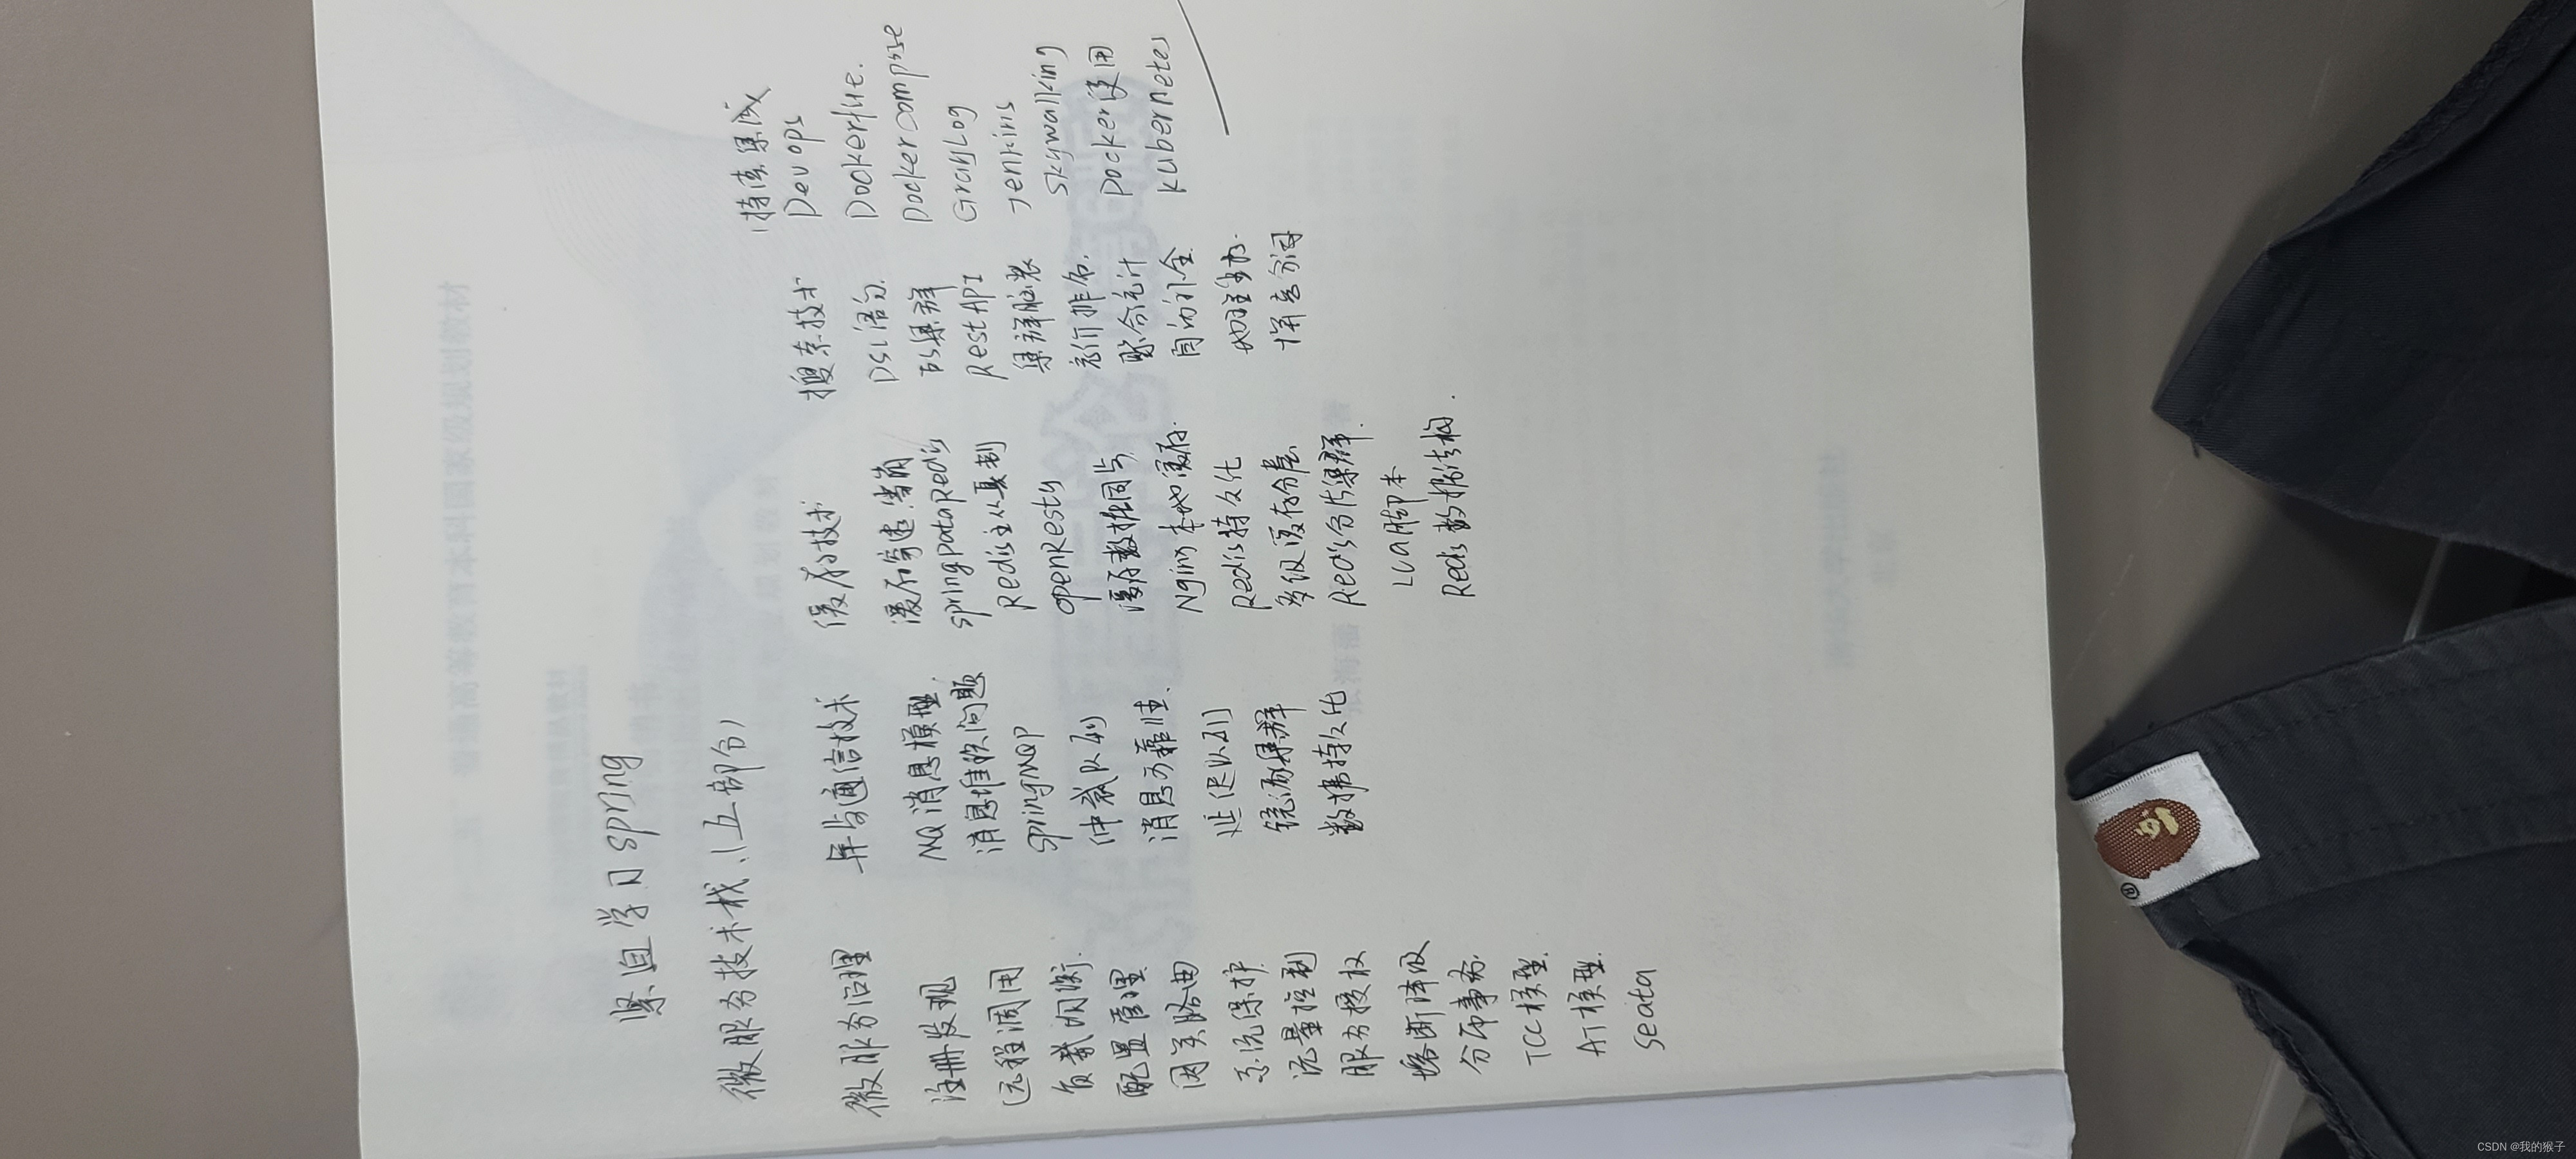 紧迫学习spring
微服务技术栈（五部分）
微服务治理
注册发现
远程调用
负载均衡.
配置管理
网关路由
系统保护
流量控制
服务授权
熔断降级
分布事务.
TCC模型.
AT模型.
Seata
异步通信技术
MQ消息模型.
消息堆积问题
SpringMQP
仲裁队列
消息可靠性.
延迟队列
镜流集群
数据持久化
缓存技术
缓存穿透.雪崩
springDataRedis
Redis主从复制
OpenResty
缓存数据同步
Nginx本地缓存.
Redis持久化
多级缓存分层
Redis分片集群.
LUa脚本
Redis数据结构.
搜索技术
DSL语句.
ES集群
RestAPI
集群脑裂
竞价排名.
聚合统计
自动补全.
地理坐标.
拼音分词
持续集成
Devops
Dockerfile.
Dockercompose
GrayLog
Jenkins
skywalking
Docker使用
kubernetes
CSDN @我的猴子